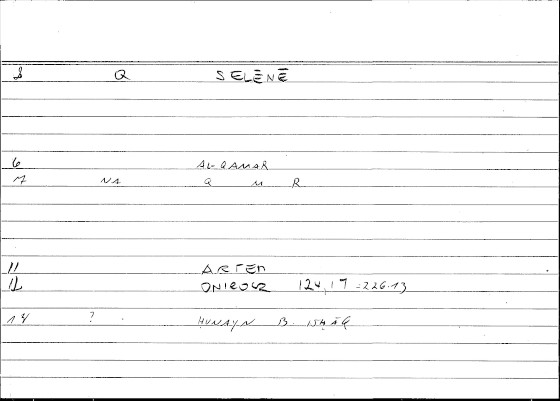 8 Q SELĒNĒ
6 AL-QAMAR
7 NA Q M R
11 ARTEM
12 ONIROCR 124,17 = 226.13
14 ? HUNAYN B. ISḤĀQ